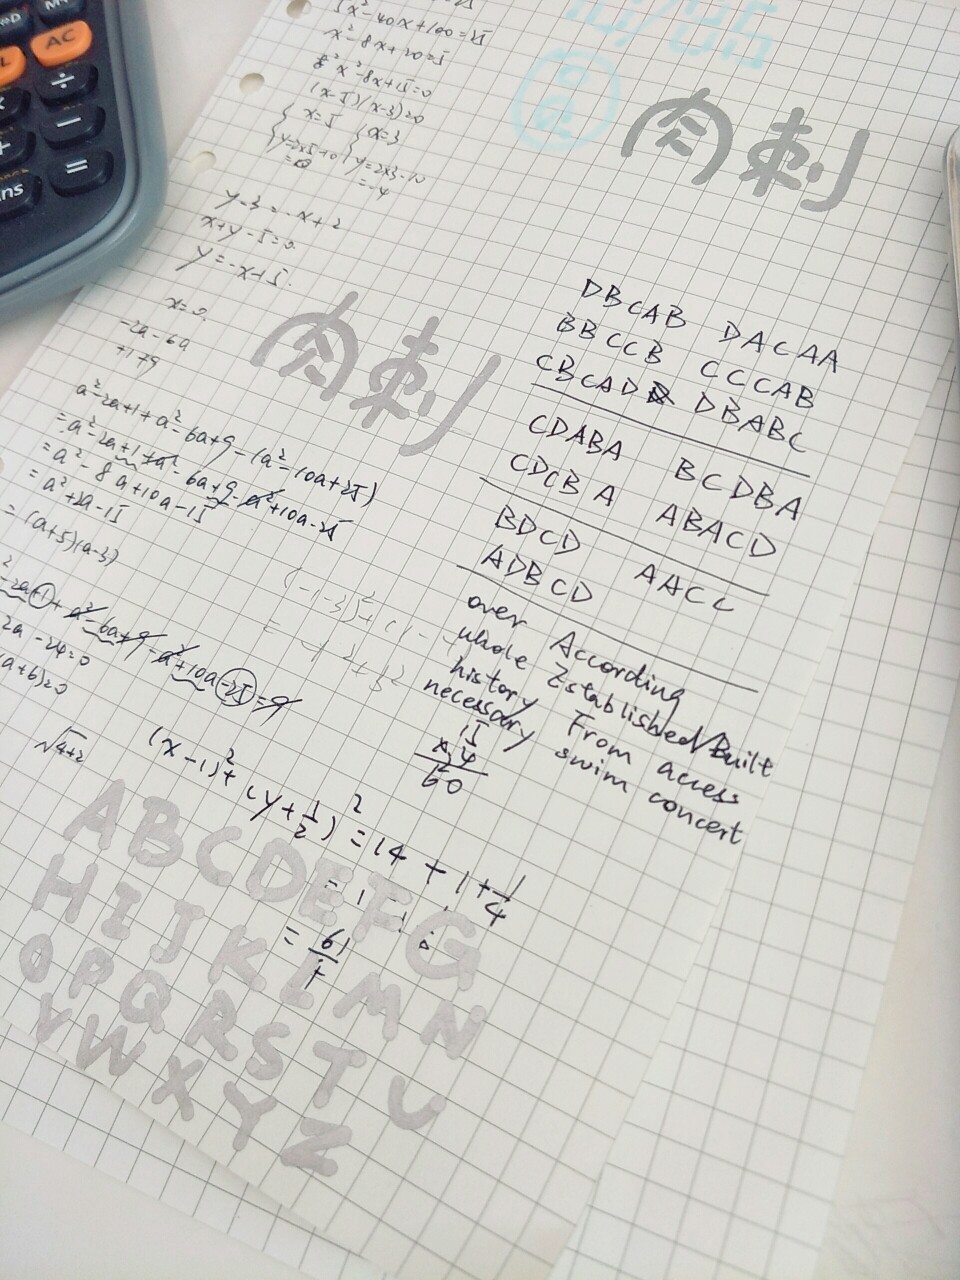 AC
÷
−
+
=
x²-40x+100=25
x²-8x+20=5
x²-8x+15=0
(x-5)(x-3)=0
x=5 x=3
y=2×3-10
=-4
y-3=-x+2
x+y-5=0
y=-x+5.
x=0.
-2a-6a
+1+9
a²-2a+1+a²-6a+9-(a²-10a+25)
=a²-2a+1+a²-6a+9-a²+10a-25
=a²-8a+10a-15
=a²+2a-15
=(a+5)(a-3)
-2a+1+a²-6a+9-a²+10a-25=9
2a-24=0
(a+6)=0
√4+2
肉刺
肉刺
DBCAB DACAA
BBCCB CCCAB
CBCAD DBABC
CDABA BCDBA
CDCBA ABACD
BDCD AACC
ADBCD
over According
whole Established/Built
history From access
necessary swim concert
15
×4
60
(x-1)²+(y+1/2)²=14+1+1/4
=61/4
ABCDEFG
HIJKLMN
OPQRSTU
VWXYZ